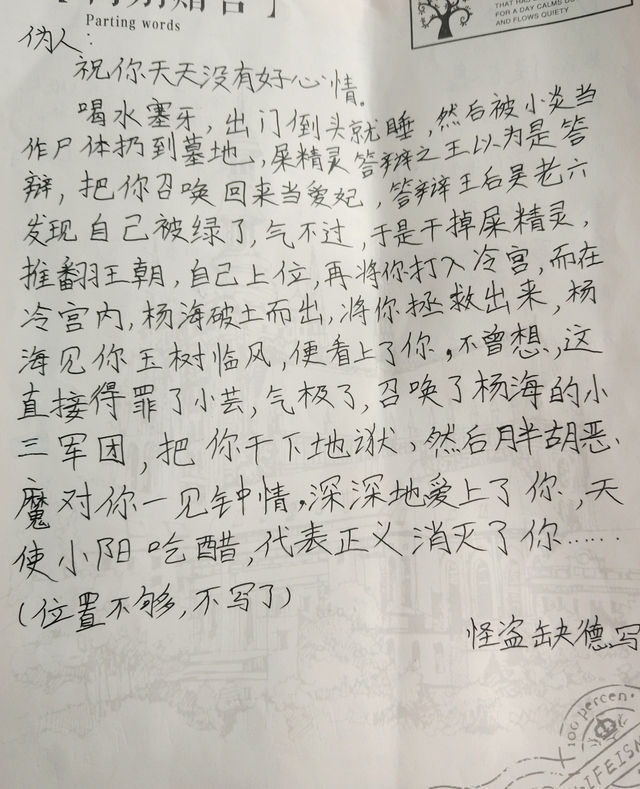 Parting words
THAT HAS
FOR A DAY CALMS DO
AND FLOWS QUIETY
伪人：
祝你天天没有好心情。
喝水塞牙，出门倒头就睡，然后被小炎当
作尸体扔到墓地，屎精灵答辩之王以为是答
辩，把你召唤回来当爱妃，答辩王后吴老六
发现自己被绿了，气不过，于是干掉屎精灵，
推翻王朝，自己上位，再将你打入冷宫，而在
冷宫内，杨海破土而出，将你拯救出来，杨
海见你玉树临风，便看上了你，不曾想，这
直接得罪了小芸，气极了，召唤了杨海的小
三军团，把你干下地狱，然后胖胡恶
魔对你一见钟情，深深地爱上了你，天
使小阳吃醋，代表正义消灭了你……
（位置不够，不写了）
怪盗缺德写
100 percen
LIFEISM